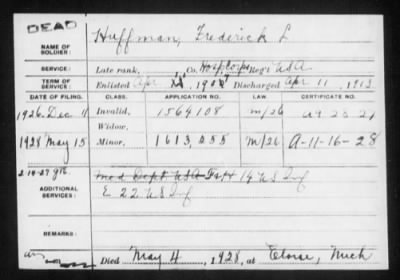 DEAD
NAME OF SOLDIER: Huffman, Frederick L
SERVICE: Late rank, Co. Hosp. Corps Reg't USA
TERM OF SERVICE: Enlisted Apr , 190 Discharged Apr 11, 1913
DATE OF FILING. CLASS. APPLICATION NO. LAW. CERTIFICATE NO.
1926 Dec 11 Invalid, 1564108 m/26
Widow,
1928 May 15 Minor, 1613,255 M/26 A-11-16-28
ADDITIONAL SERVICES: Med Dept. USA 14 US Inf
E 22 US Inf
REMARKS:
Died May 4, 1928, at Eloise, Mich